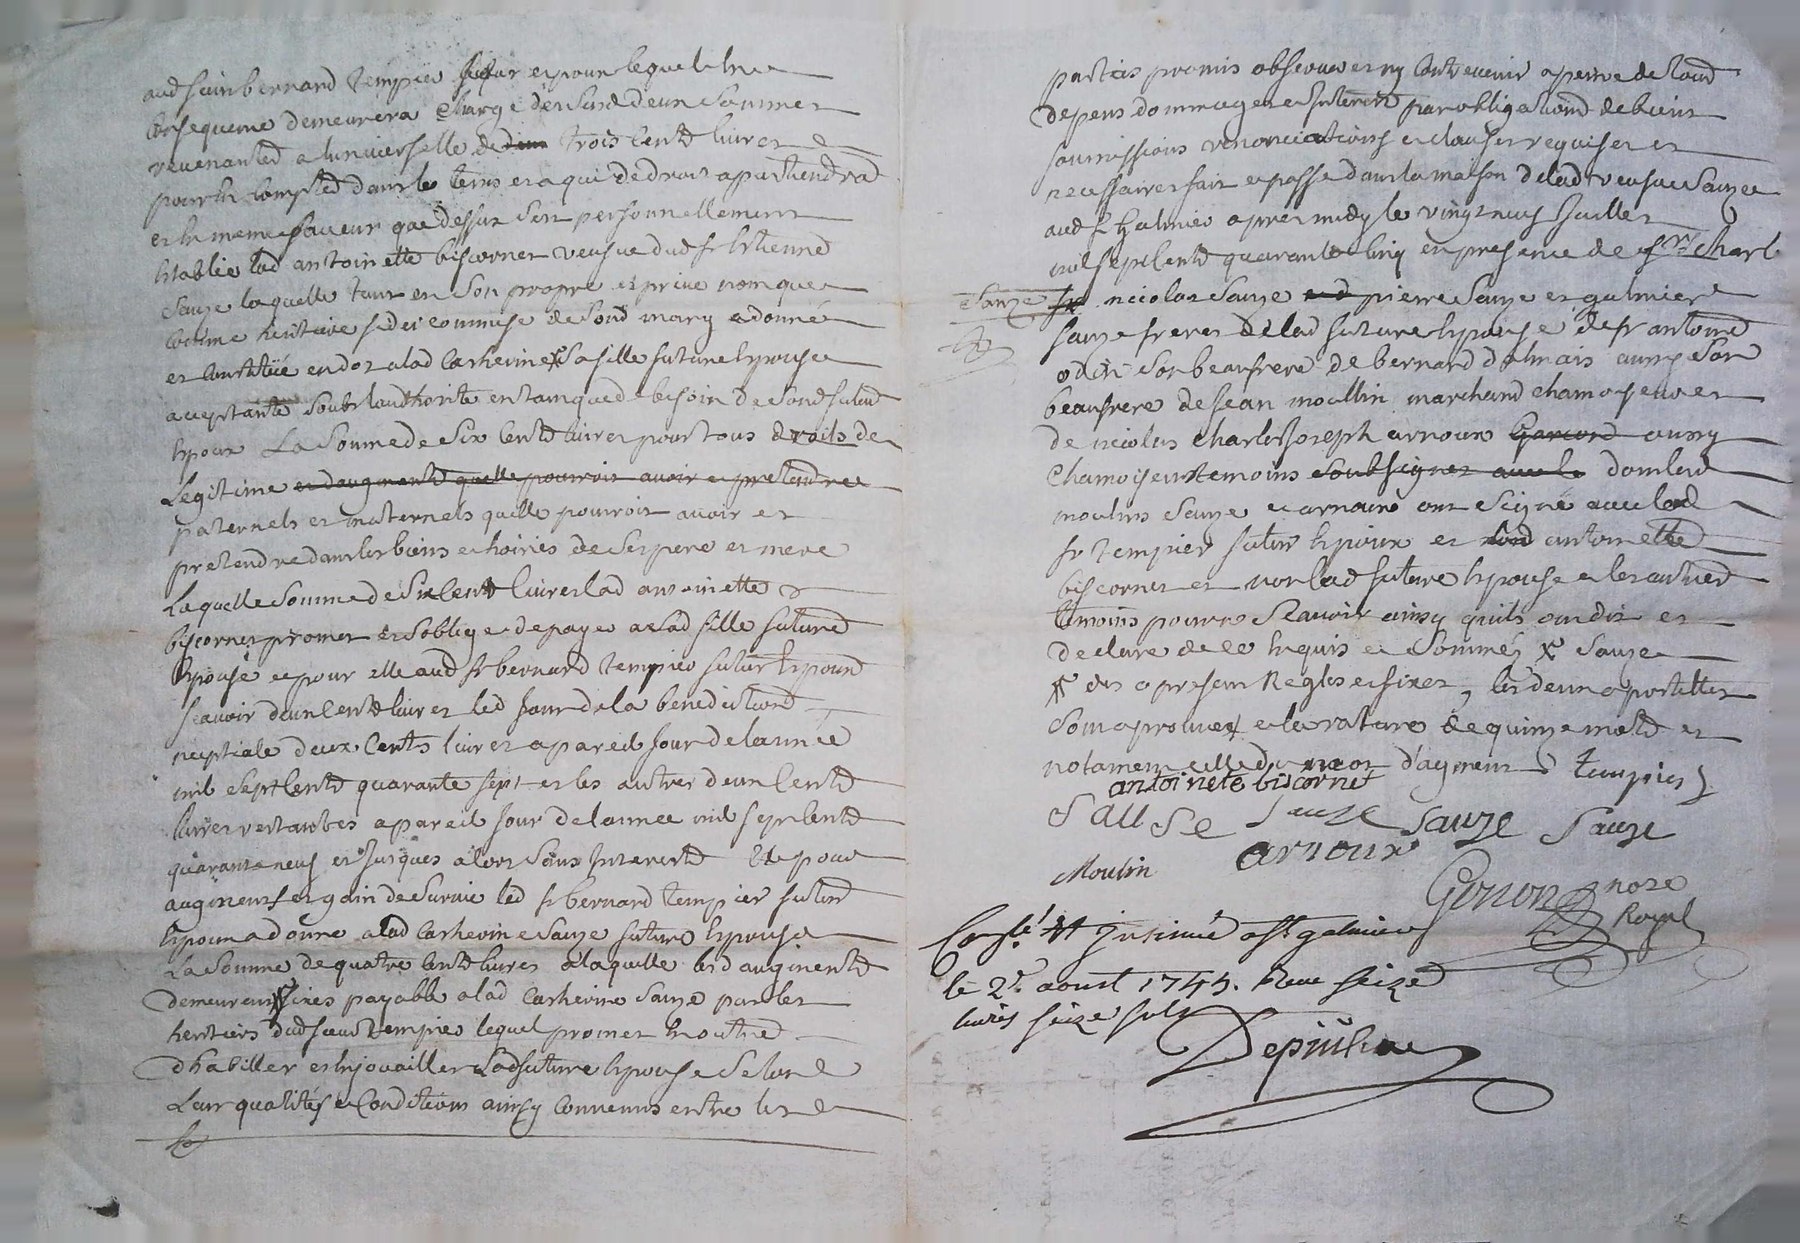 aud sieur bernard tempier futur et pour lequel
demeurera chargé d'une somme
revenante a l'universelle de trois cents livres
pour dans le tems et a qui de droit apartiendra
et en meme faveur que dessus s'est personnellement
establie lad antoinette biscornet veufve dud sr Etienne
Sauze laquelle tant en son propre et privé nom que
comme heritiere fideicommise de sond mary a donné
et constitué en dot a lad Catherine Sauze sa fille future Epouse
acceptante soubs l'authorité en tant que de besoin de sond futur
Epoux La Somme de Six Cents livres pour tous droits de
Legitime et augments quelle pourroit avoir et pretendre
paternels et maternels quelle pourroit avoir et
pretendre dans les biens et hoiries de ses pere et mere
Laquelle Somme de Six Cents livres lad antoinette
biscornet promet et s'oblige de payer a sad fille future
Epouse et pour elle aud sr bernard tempier futur Epoux
scavoir deux Cents livres led jour de la benediction
nuptiale deux Cents livres a pareil jour de lannée
mil sept Cents quarante sept et les autres deux Cents
livres restantes a pareil jour de lannée mil sept Cents
quarante neuf et jusques alors sans Interets Et pour
augment et gain de survie led sr bernard tempier futur
Epoux a donné a lad Catherine Sauze future Epouse
La Somme de quatre Cents livres a laquelle les d augments
demeurent fixés payable a lad Catherine Sauze par les
heritiers dud sieur tempier lequel promet En outre
d'habiller et Enjouailler Lad future Epouse Selon
Leur qualités et Conditions ainsy Convenus entre les
parties promis observer et ny Contrevenir a peine de tous
depens dommages et Interets par obligations de biens
soumissions renonciations et clauses requises et
necessaires fait et passé dans la maison de lad veufve Sauze
aud st galmier apres midy le vingt neuf Juillet
mil sept Cents quarante Cinq en presence de srs Charle
Sauze nicolas Sauze pierre Sauze et galmier
Sauze freres de lad future Epouse de sr antoine
odin son beaufrere de bernard dalmais aussy son
beaufrere de Jean moullin marchand chamoyseur et
de nicolas charles Joseph arnoux aussy
chamoyseur temoins soubsignez avec le dont led
moulin Sauze et arnoux ont signé avec led
sr tempier futur Epoux et lad antoinette
biscornet et non lad future Epouse et les autres
temoins pour ne scavoir ainsy quils ont dit et
declaré de ce Enquis et Sommés x Sauze
x des a present Reglés et fixes, les deux apostilles
sont aprouvez et la rature de quinze mots et
notament celle du mot d'augment tempier
antoinete biscornet
Sauze Sauze Sauze Sauze
Moulin arnoux
Gonon nore
Royal
Conlé et Insinué a st galmier
le 2e. aoust 1745. Reçu seize
livres seize sols